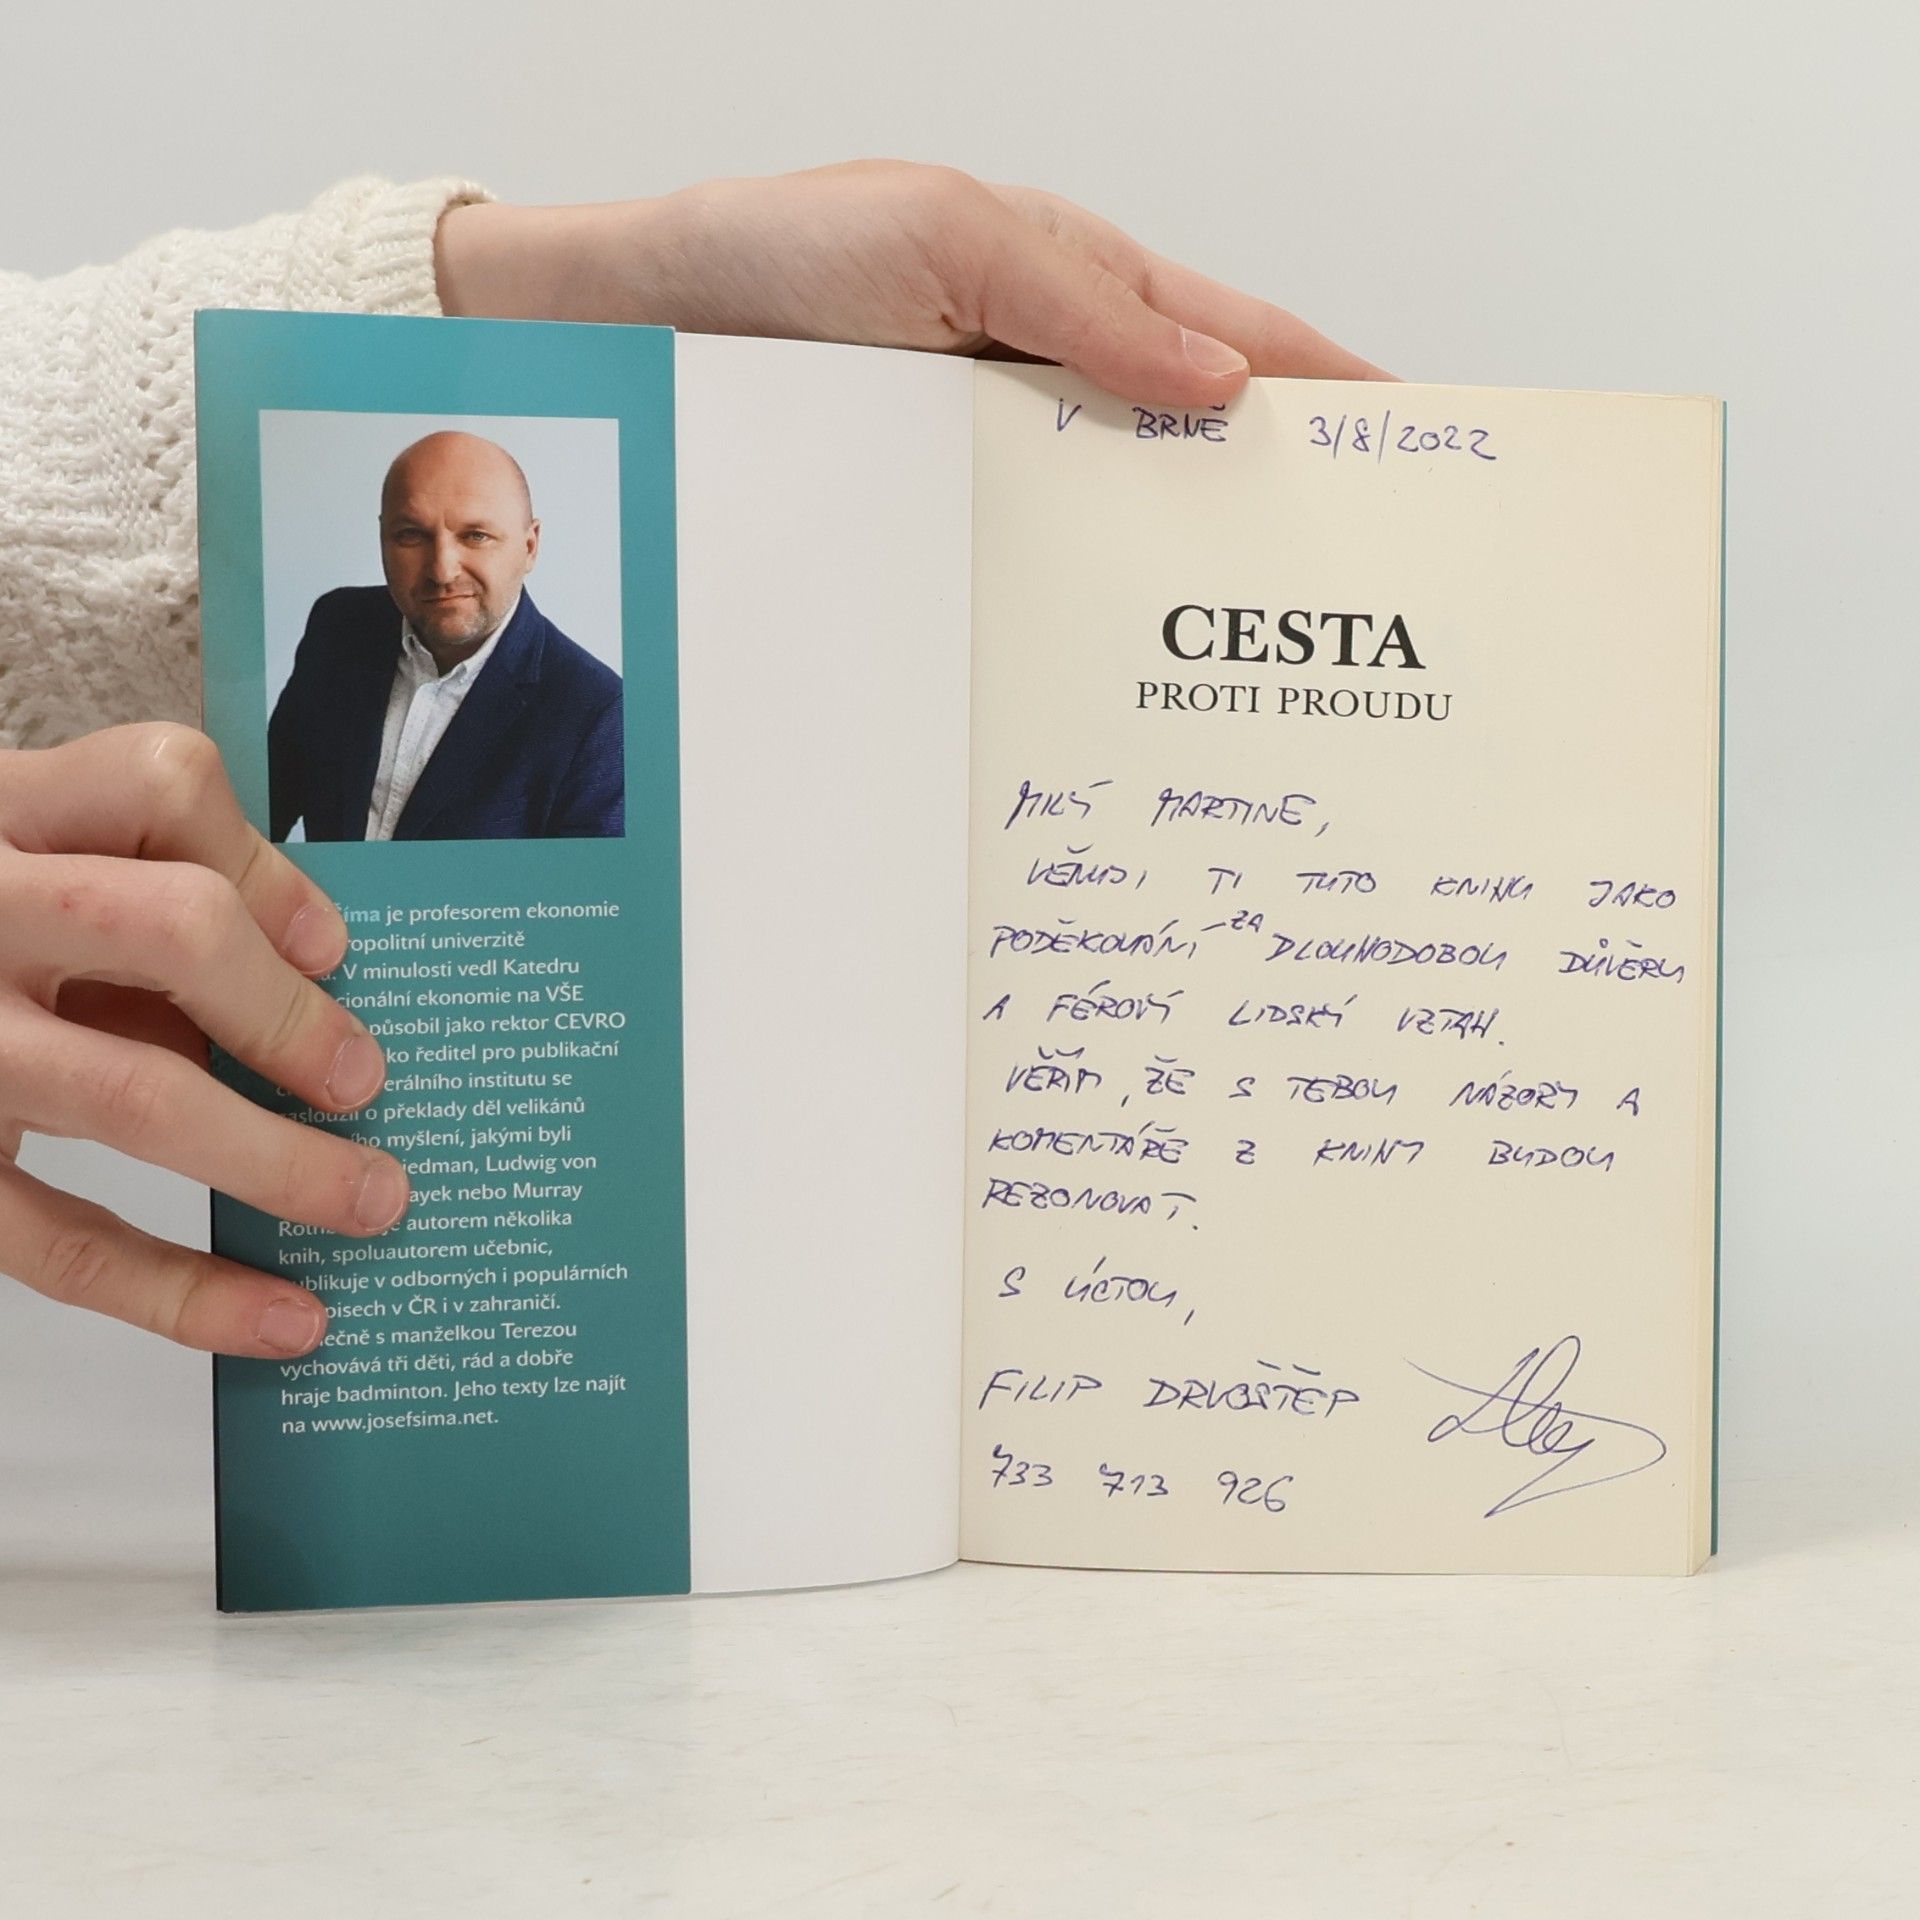 šíma je profesorem ekonomie
ropolitní univerzitě
V minulosti vedl Katedru
cionální ekonomie na VŠE
působil jako rektor CEVRO
ko ředitel pro publikační
erálního institutu se
zasloužil o překlady děl velikánů
ho myšlení, jakými byli
iedman, Ludwig von
ayek nebo Murray
autorem několika
knih, spoluautorem učebnic,
publikuje v odborných i populárních
pisech v ČR i v zahraničí.
ečně s manželkou Terezou
vychovává tři děti, rád a dobře
hraje badminton. Jeho texty lze najít
na www.josefsima.net.
V BRNĚ 3/8/2022
CESTA
PROTI PROUDU
MILÝ MARTINE,
VĚNUJI TI TUTO KNIHU JAKO
PODĚKOVÁNÍ ZA DLOUHODOBOU DŮVĚRU
A FÉROVÝ LIDSKÝ VZTAH.
VĚŘÍM, ŽE S TEBOU NÁZORY A
KOMENTÁŘE Z KNIHY BUDOU
REZONOVAT.
S ÚCTOU,
FILIP DRVOŠTĚP
733 713 926